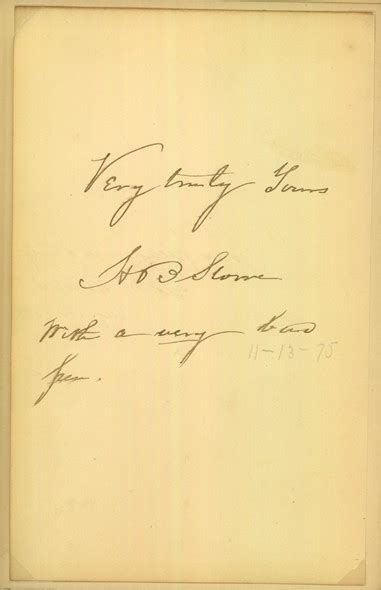 Very truly Yours
H B Stowe
With a very bad
pen.
11-13-75